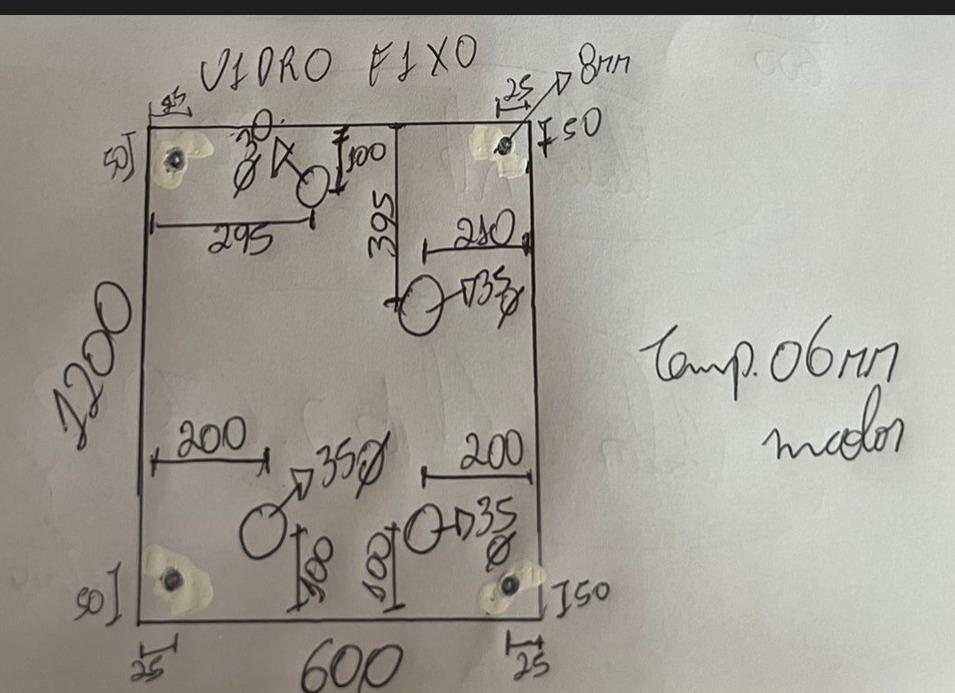 VIDRO FIXO
8mm
25
25
50
50
Ø 30
100
295
395
210
35 Ø
1200
Temp. 06mm
incolor
200
35 Ø
200
35 Ø
100
100
50
50
25
600
25